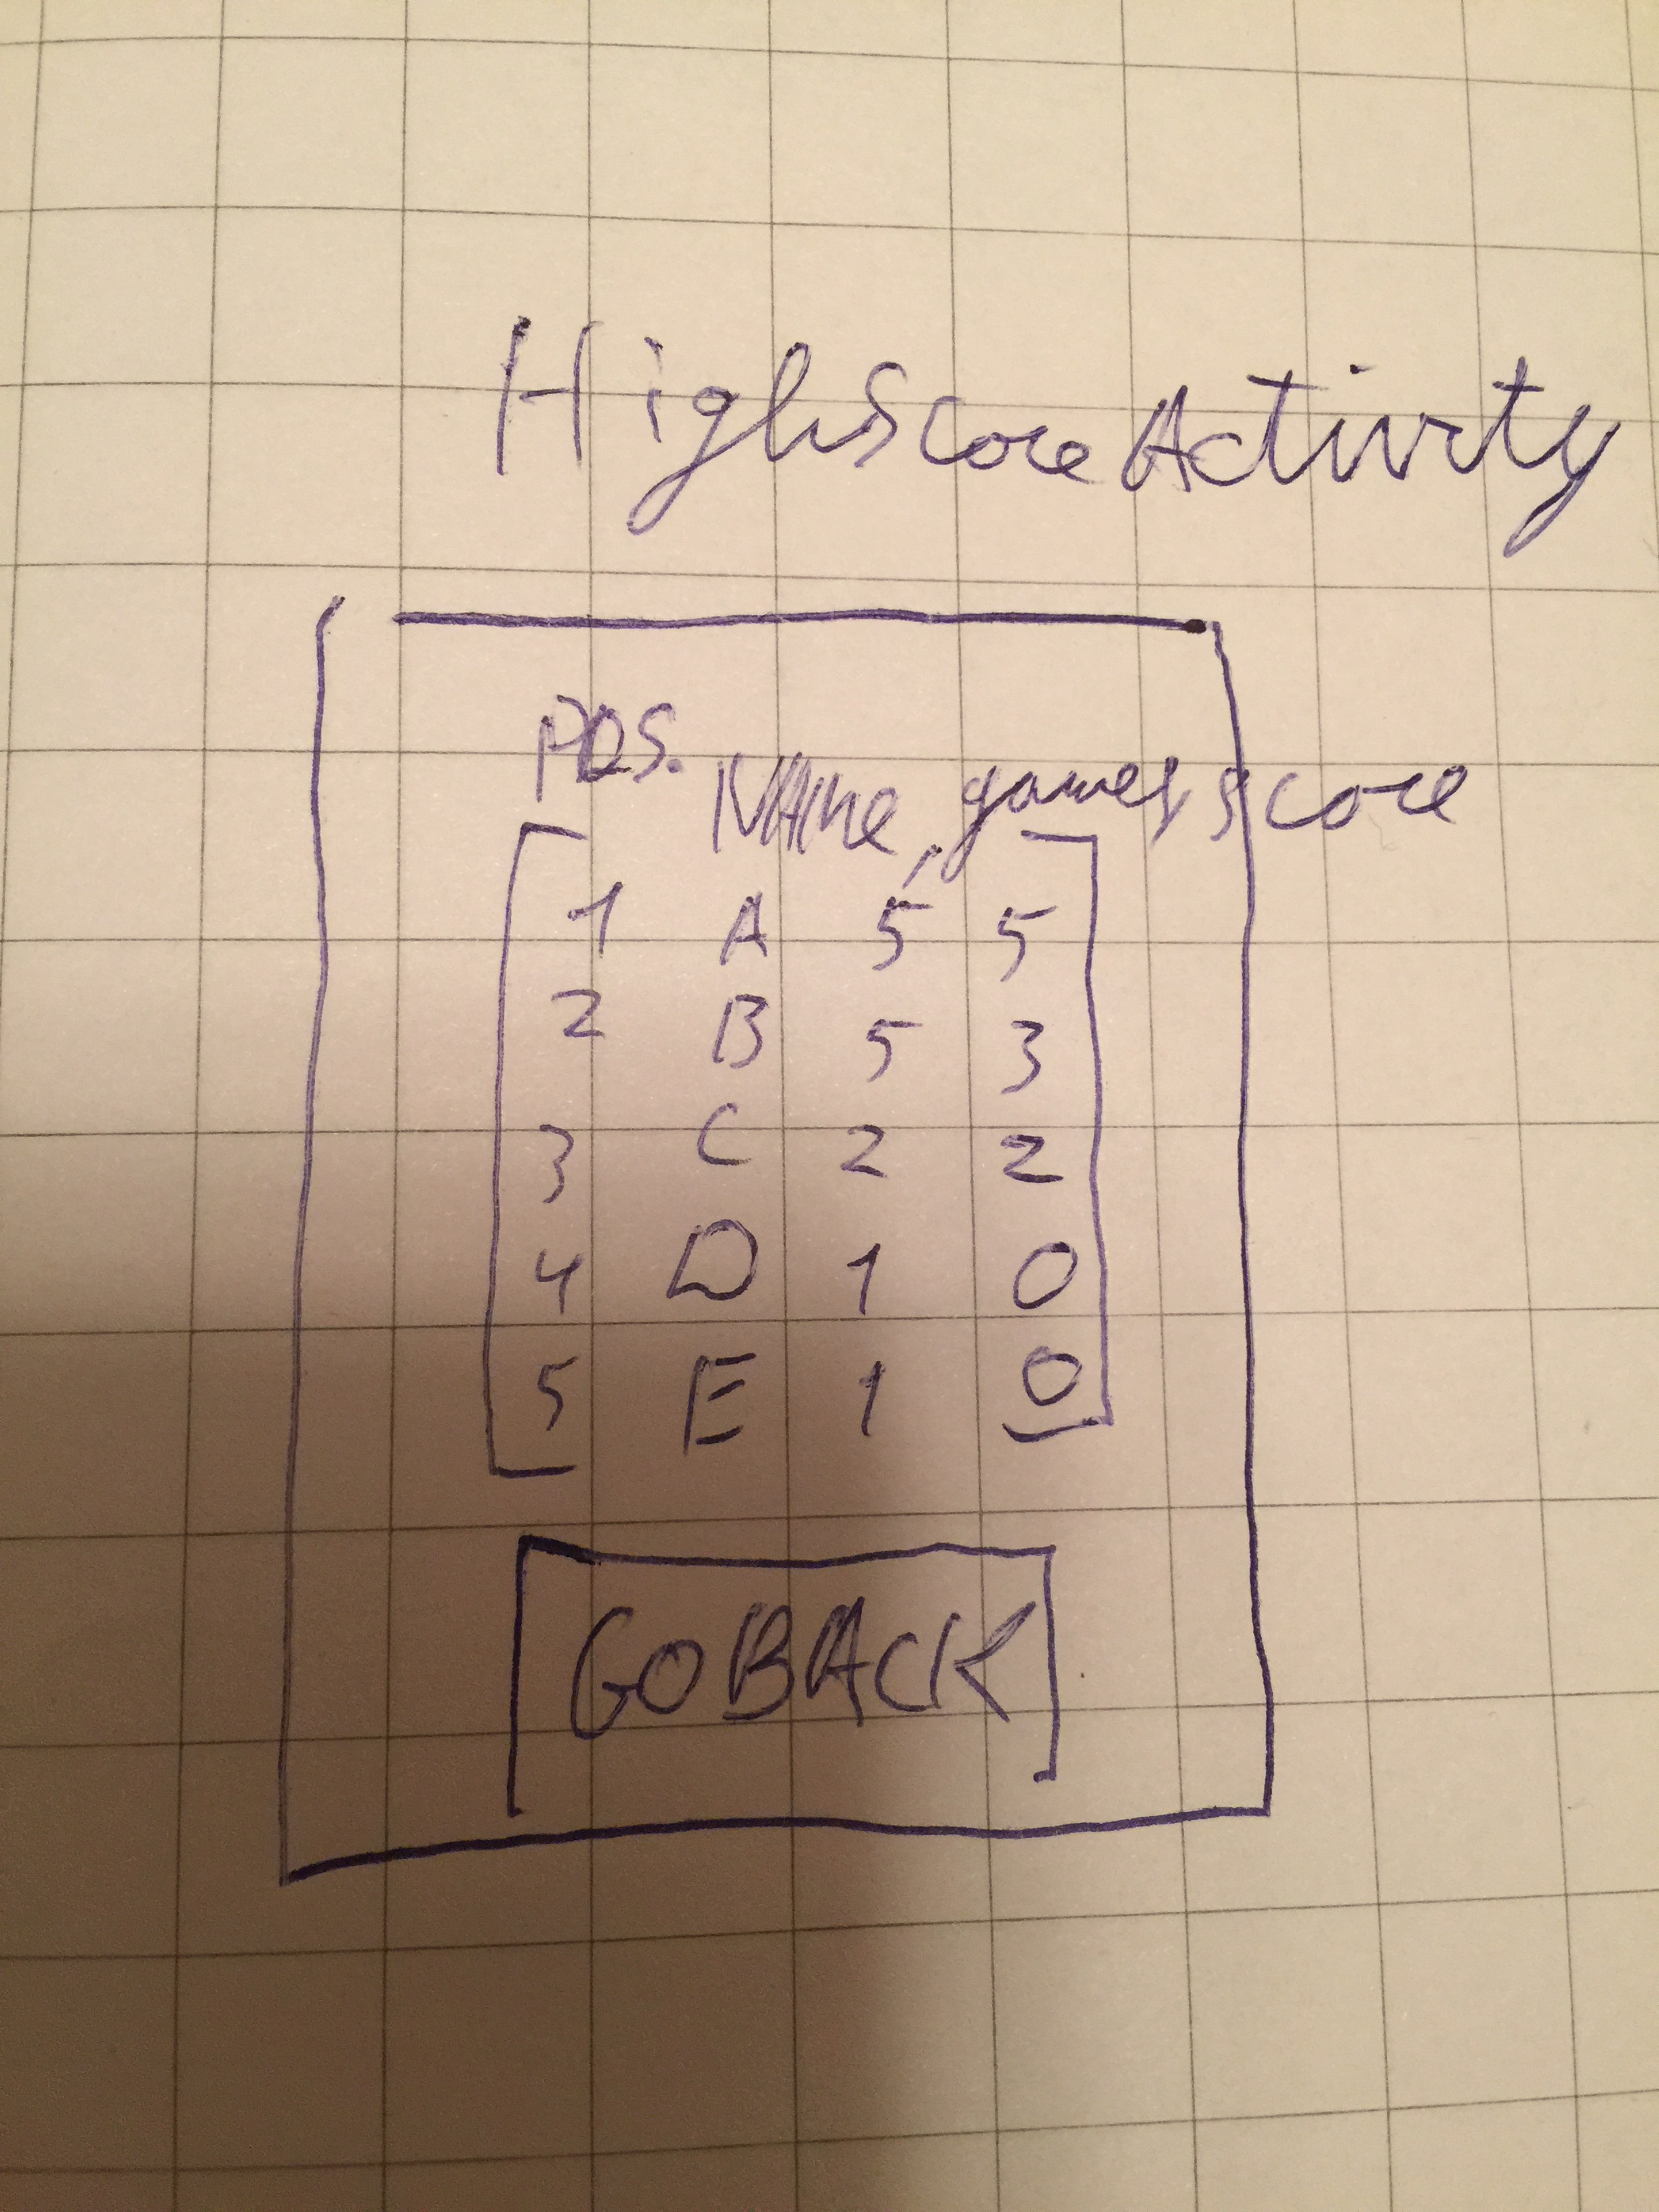 HighScoreActivity
POS. Name, games score
1 A 5 5
2 B 5 3
3 C 2 2
4 D 1 0
5 E 1 0
GO BACK